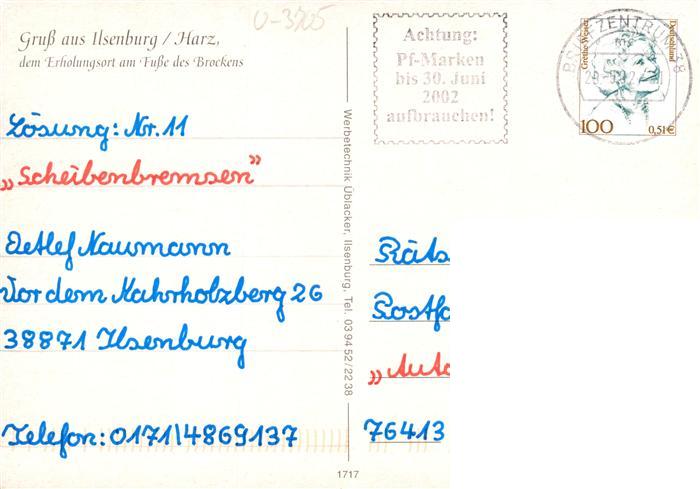 Gruß aus Ilsenburg / Harz,
dem Erholungsort am Fuße des Brockens
Achtung:
Pf-Marken
bis 30. Juni
2002
aufbrauchen!
BRIEFZENTRUM 38
Grethe Weiser
Deutschland
100
0,51€
Lösung: Nr. 11
„Scheibenbremsen"
Detlef Naumann
Vor dem Kahrholzberg 26
38871 Ilsenburg
Telefon: 0171\4869137
Werbetechnik Üblacker, Ilsenburg, Tel. 039452/2238
1717
Räts
Postfa
„Auto
76413